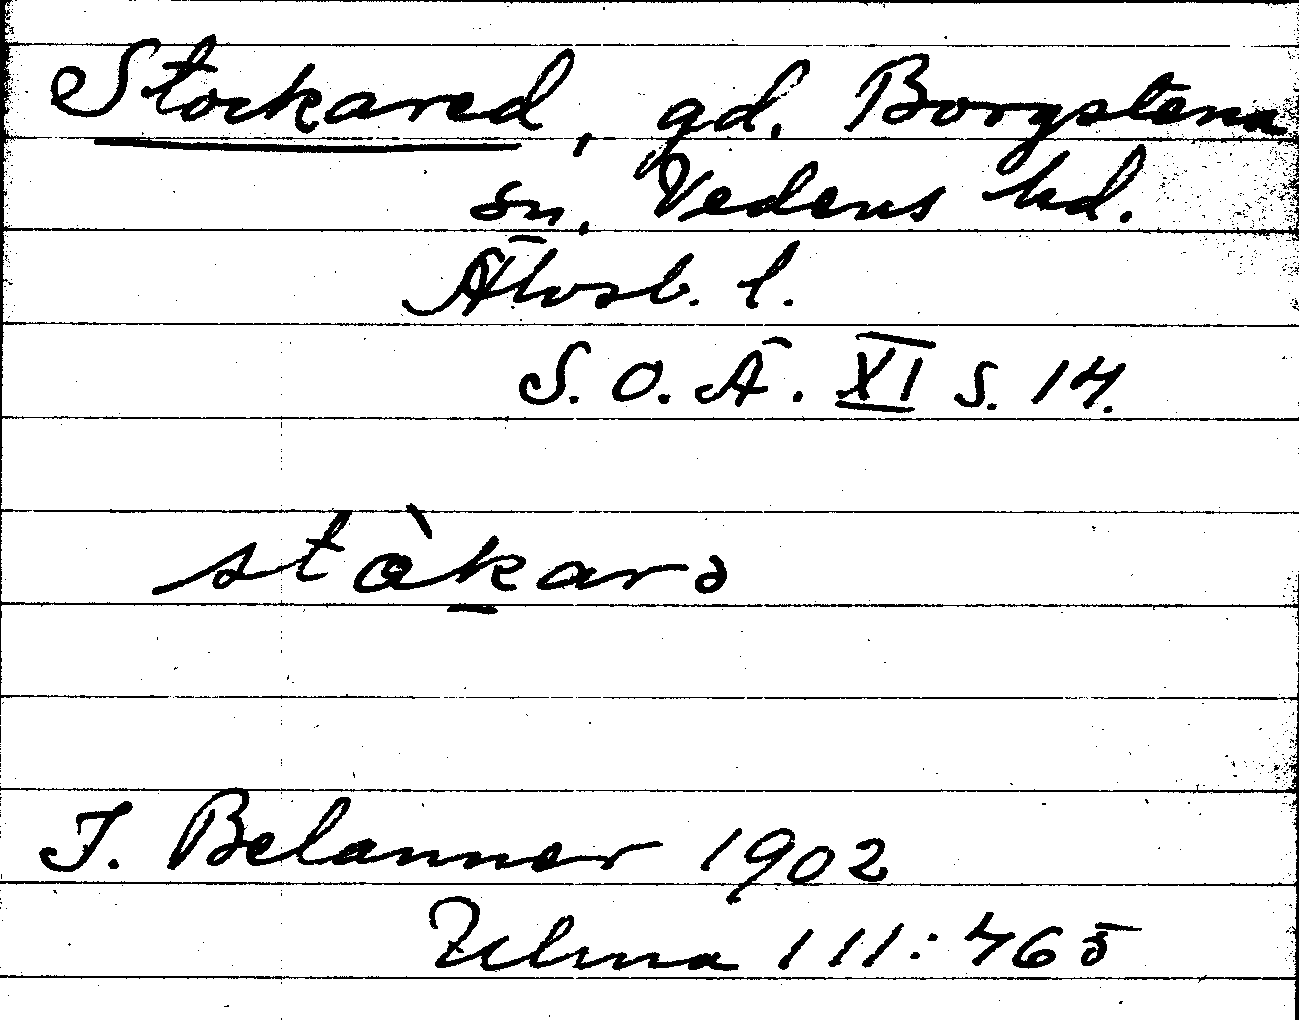 Stockared, gd. Borgstena
sn. Vedens hd.
Älvsb. l.
S. O. Ä. XI S. 14.
ståkarə
T. Belanner 1902
Ulma 111:465